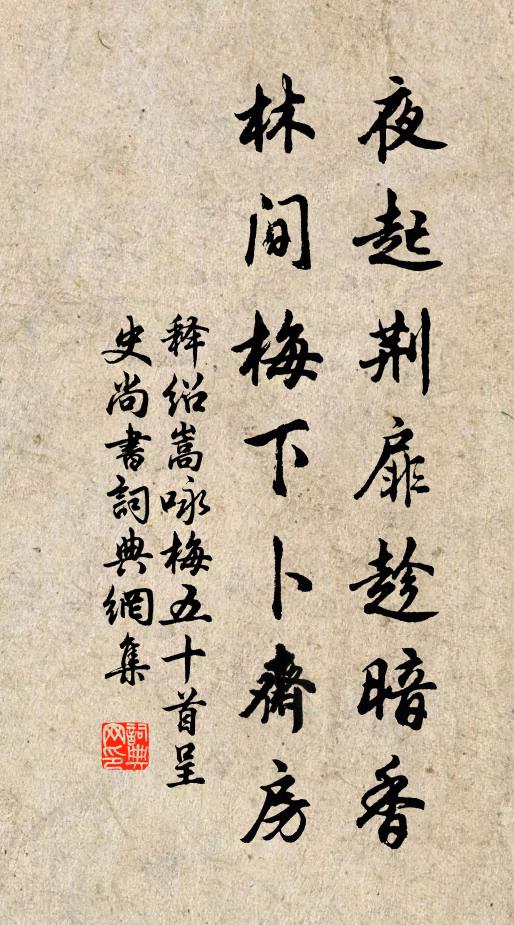 夜起荆扉趁暗香
林间梅下卜齋房
释绍嵩咏梅五十首呈
史尚書詞典網集
詞典
网印